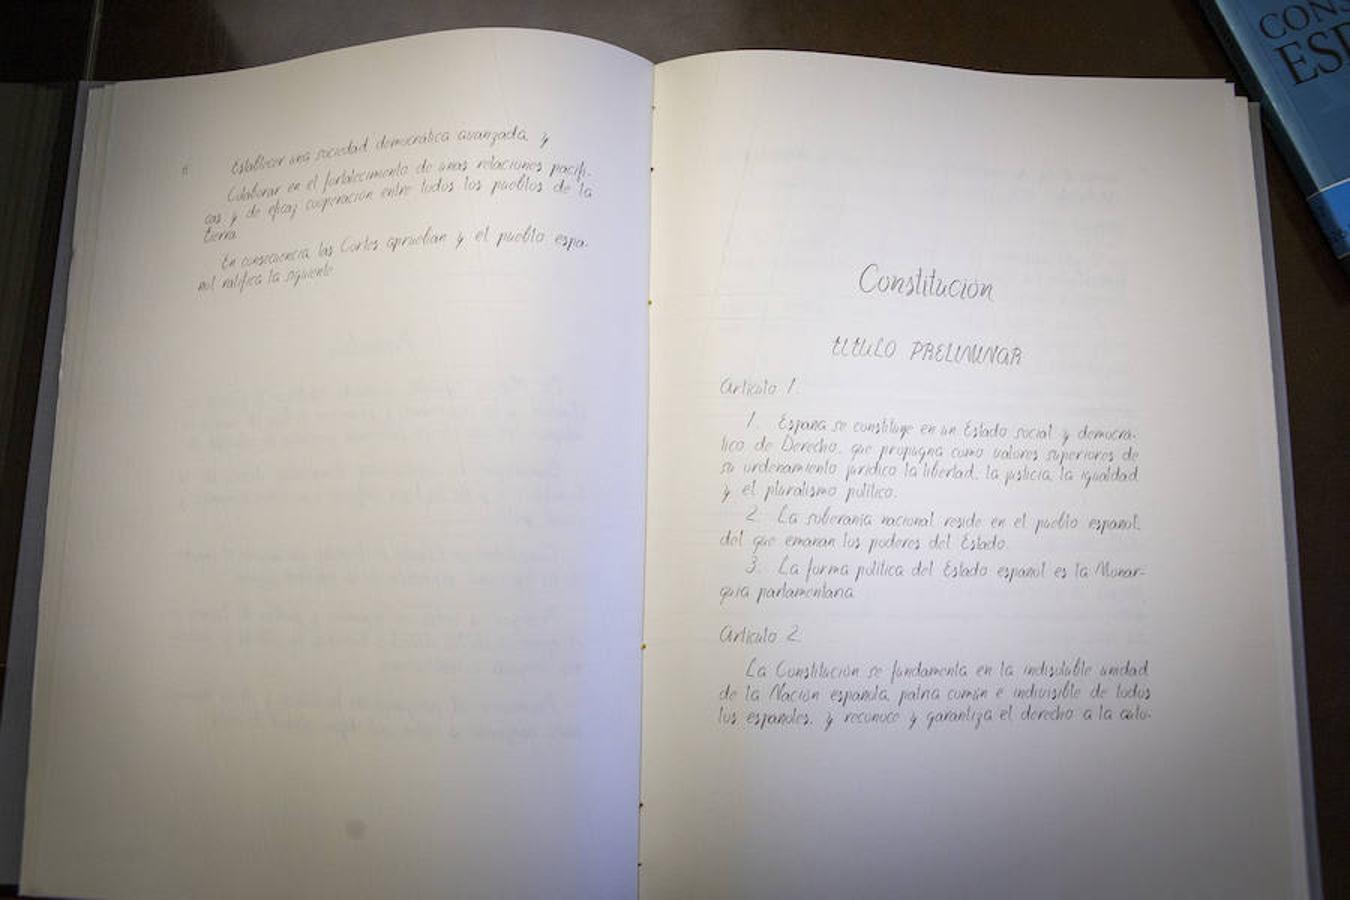 Establecer una sociedad democrática avanzada, y
Colaborar en el fortalecimiento de unas relaciones pacífi-
cas y de eficaz cooperación entre todos los pueblos de la
tierra.
En consecuencia, las Cortes aprueban y el pueblo espa-
ñol ratifica la siguiente
Constitución
TITULO PRELIMINAR
Artículo 1.
1. España se constituye en un Estado social y democrá-
tico de Derecho, que propugna como valores superiores de
su ordenamiento jurídico la libertad, la justicia, la igualdad
y el pluralismo político.
2. La soberanía nacional reside en el pueblo español,
del que emanan los poderes del Estado.
3. La forma política del Estado español es la Monar-
quía parlamentaria.
Artículo 2.
La Constitución se fundamenta en la indisoluble unidad
de la Nación española, patria común e indivisible de todos
los españoles, y reconoce y garantiza el derecho a la auto-
CONS
ESP